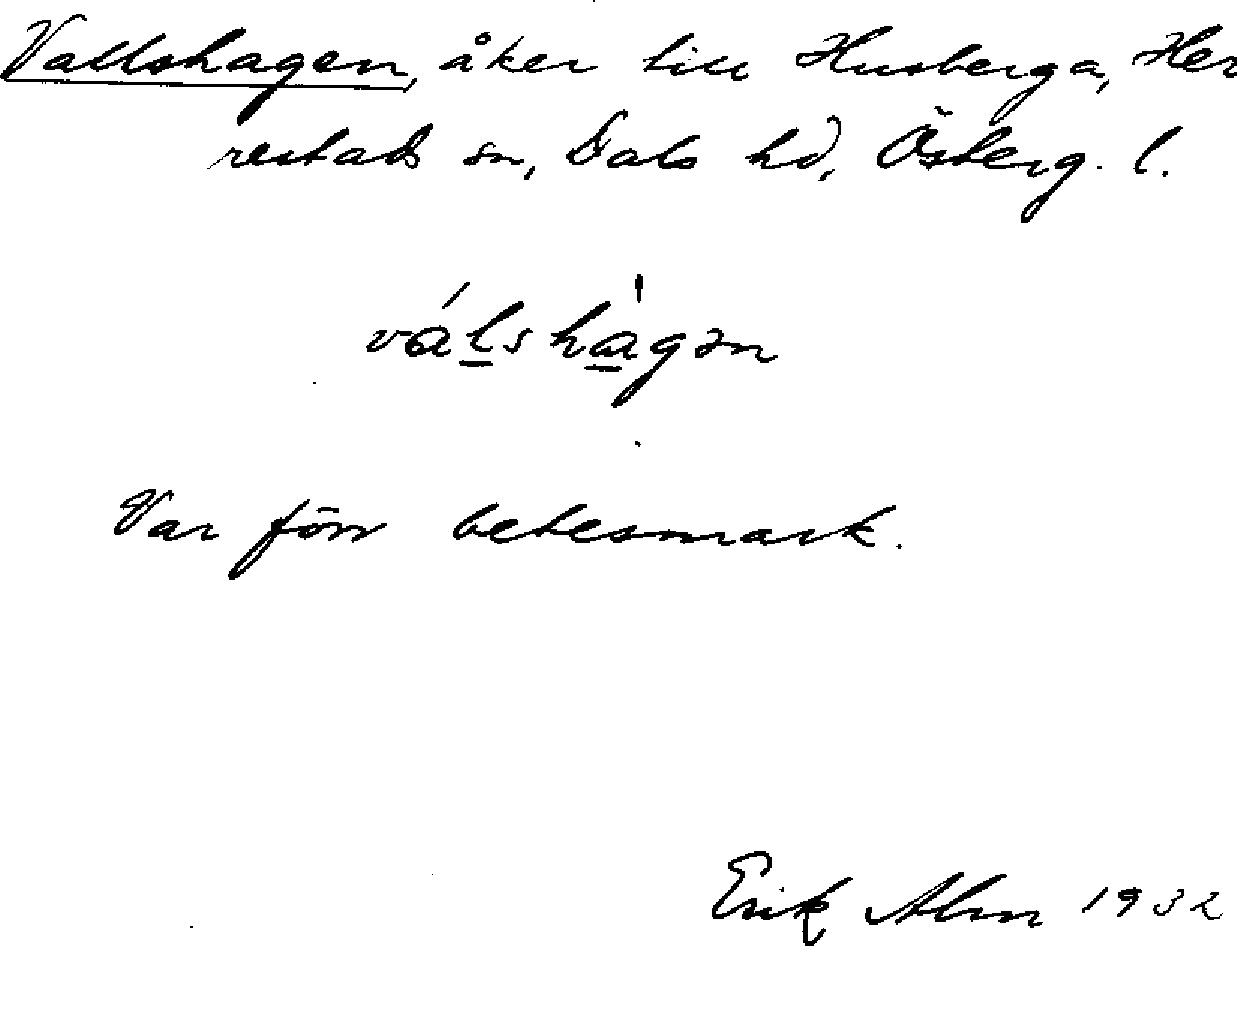 Vallshagen, åker till Husberga, Her
restads sn, Dals hd, Österg. l.
válshágən
Var förr betesmark.
Erik Alm 1932